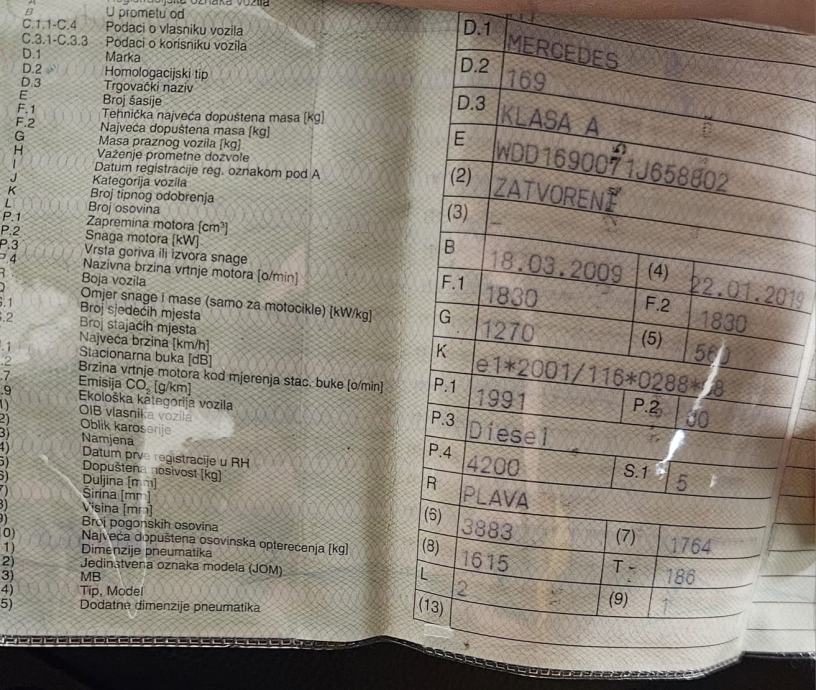 B U prometu od
C.1.1-C.4 Podaci o vlasniku vozila
C.3.1-C.3.3 Podaci o korisniku vozila
D.1 Marka
D.2 Homologacijski tip
D.3 Trgovački naziv
E Broj šasije
F.1 Tehnička najveća dopuštena masa [kg]
F.2 Najveća dopuštena masa [kg]
G Masa praznog vozila [kg]
H Važenje prometne dozvole
I Datum registracije reg. oznakom pod A
J Kategorija vozila
K Broj tipnog odobrenja
L Broj osovina
P.1 Zapremina motora [cm³]
P.2 Snaga motora [kW]
P.3 Vrsta goriva ili izvora snage
P.4 Nazivna brzina vrtnje motora [o/min]
Boja vozila
Omjer snage i mase (samo za motocikle) [kW/kg]
.1 Broj sjedećih mjesta
.2 Broj stajaćih mjesta
Najveća brzina [km/h]
.1 Stacionarna buka [dB]
.2 Brzina vrtnje motora kod mjerenja stac. buke [o/min]
.7 Emisija CO₂ [g/km]
.9 Ekološka kategorija vozila
1) OIB vlasnika vozila
2) Oblik karoserije
3) Namjena
4) Datum prve registracije u RH
5) Dopuštena nosivost [kg]
6) Duljina [mm]
7) Širina [mm]
8) Visina [mm]
9) Broj pogonskih osovina
0) Najveća dopuštena osovinska opterećenja [kg]
1) Dimenzije pneumatika
2) Jedinstvena oznaka modela (JOM)
3) MB
4) Tip, Model
5) Dodatne dimenzije pneumatika
D.1 MERCEDES
D.2 169
D.3 KLASA A
E WDD1690071J658802
(2) ZATVORENI
(3) -
B 18.03.2009 (4) 22.01.2019
F.1 1830 F.2 1830
G 1270 (5) 560
K e1*2001/116*0288*
P.1 1991 P.2
P.3 Diesel
P.4 4200 S.1 5
R PLAVA
(6) 3883 (7) 1764
(8) 1615 T - 186
L 2 (9) 1
(13)